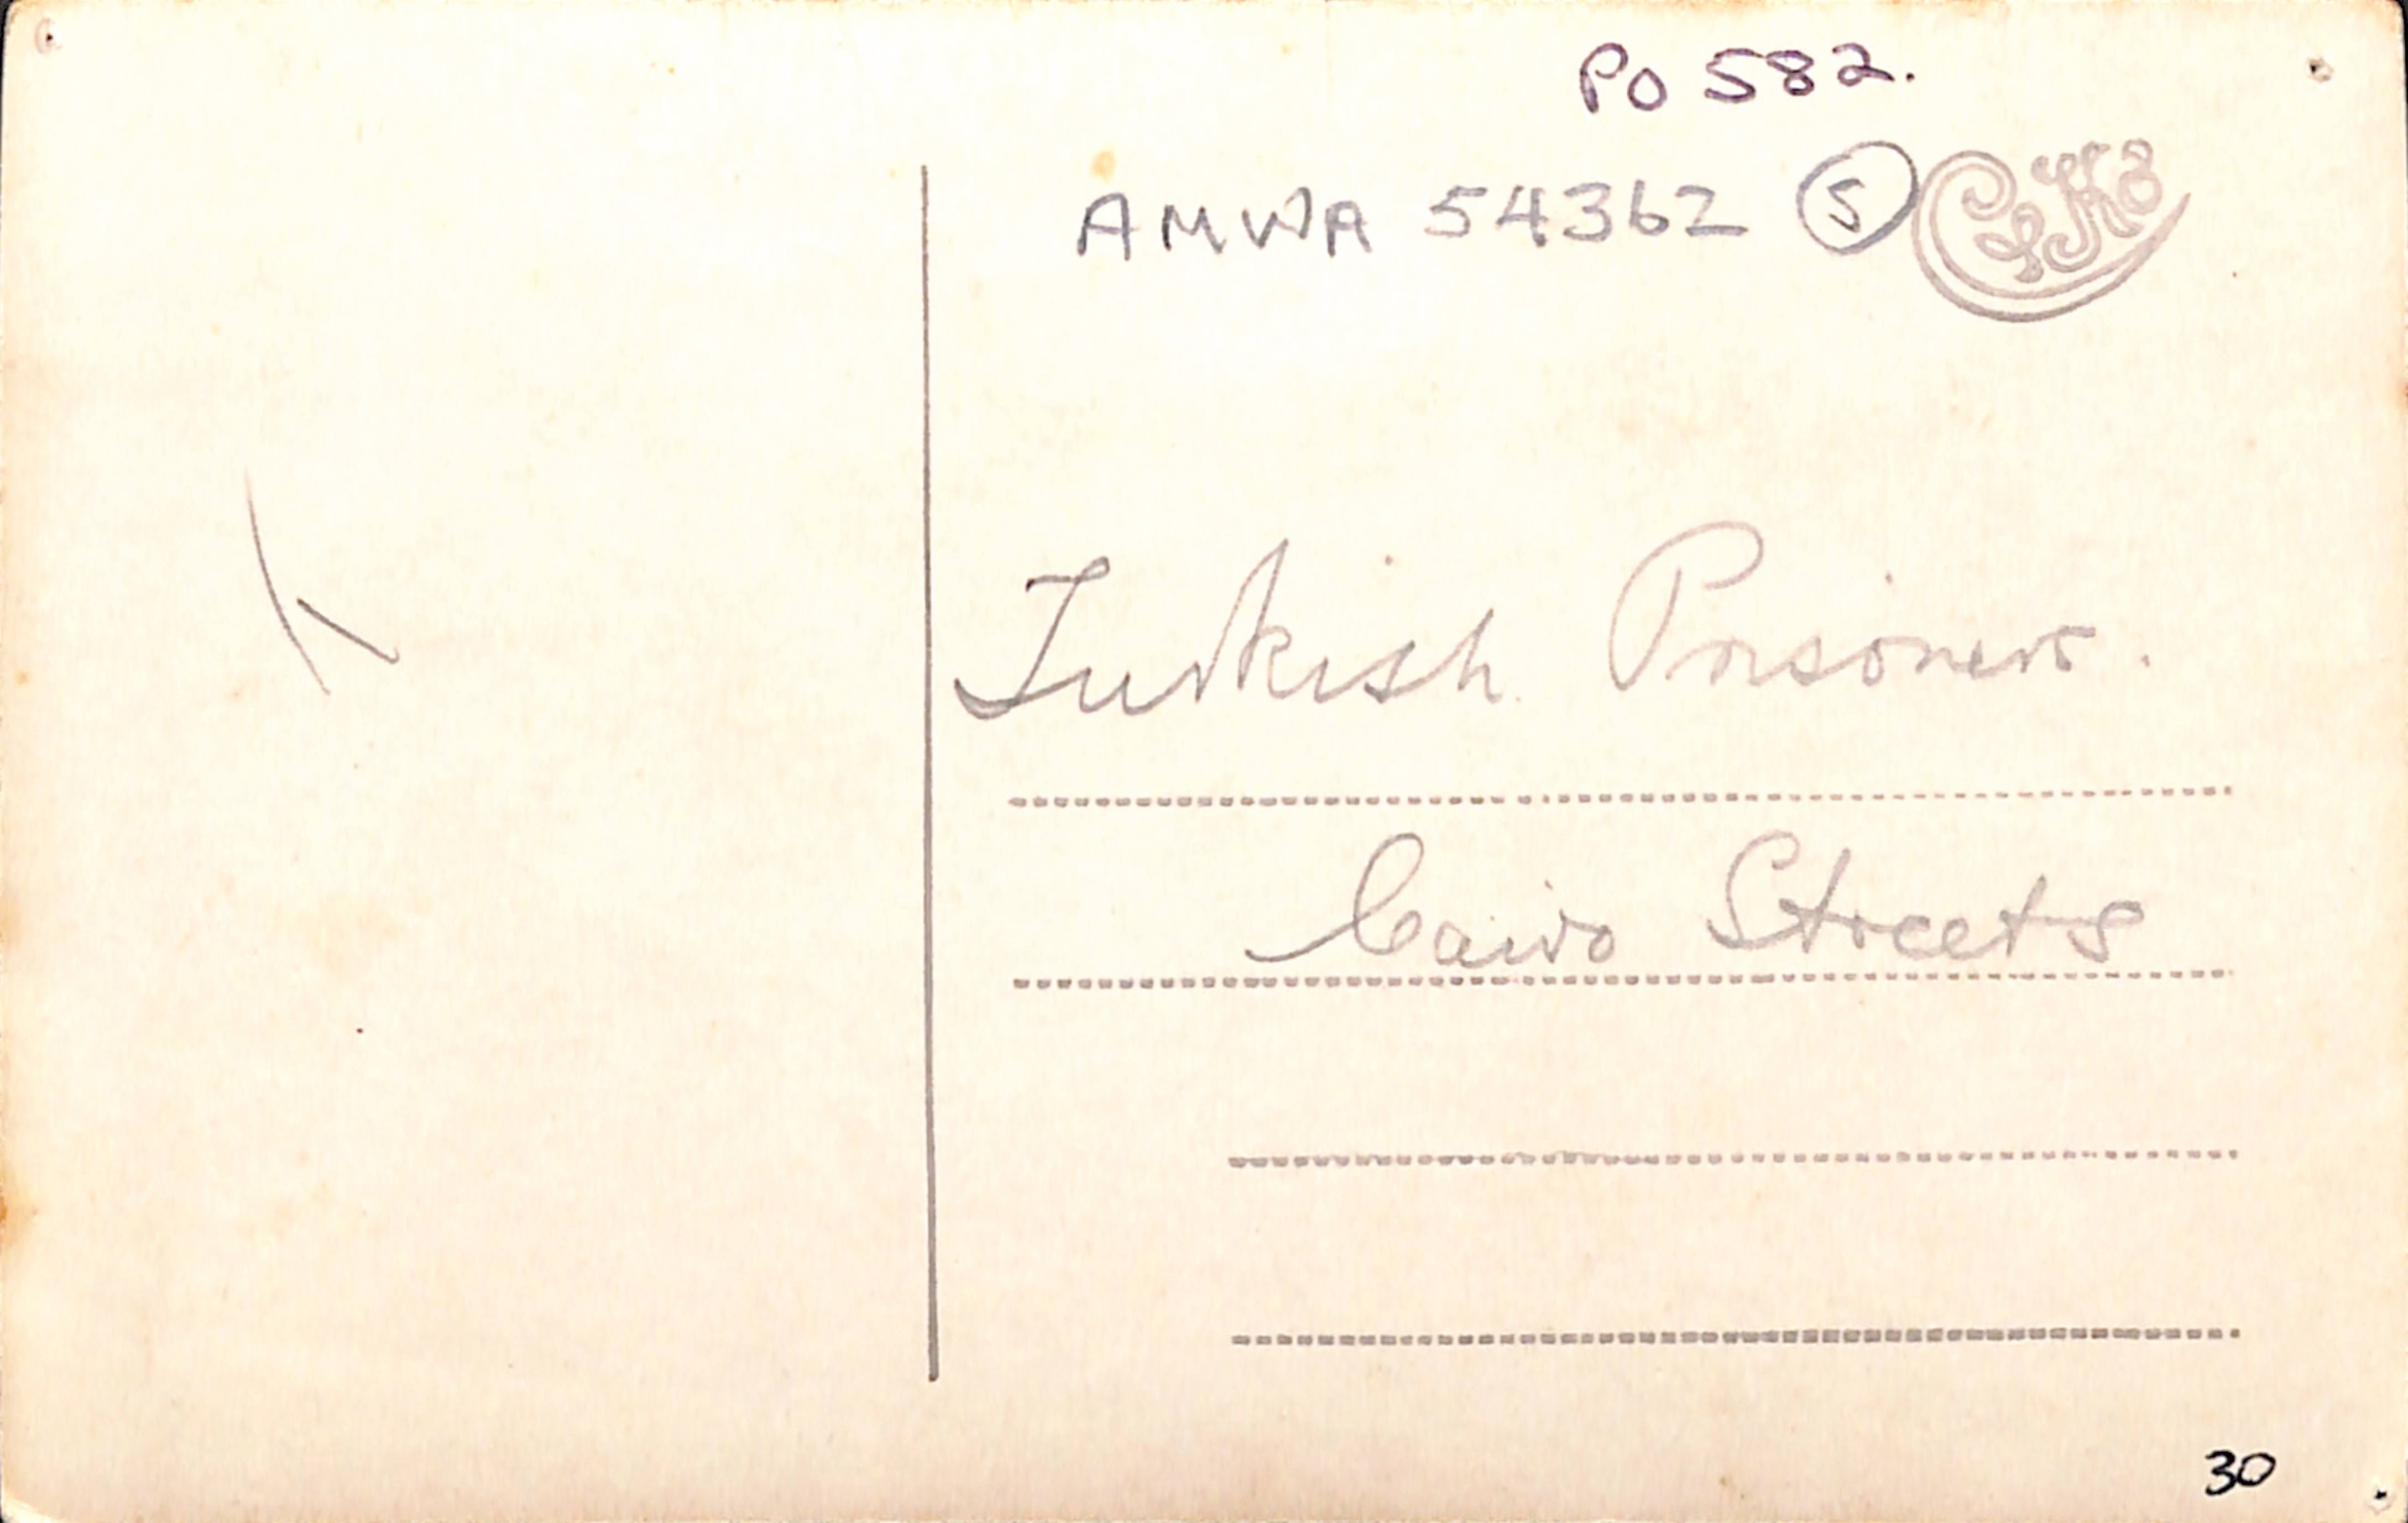 PO 582.
AMWA 54362 5
Turkish Prisoners.
Cairo Streets
30